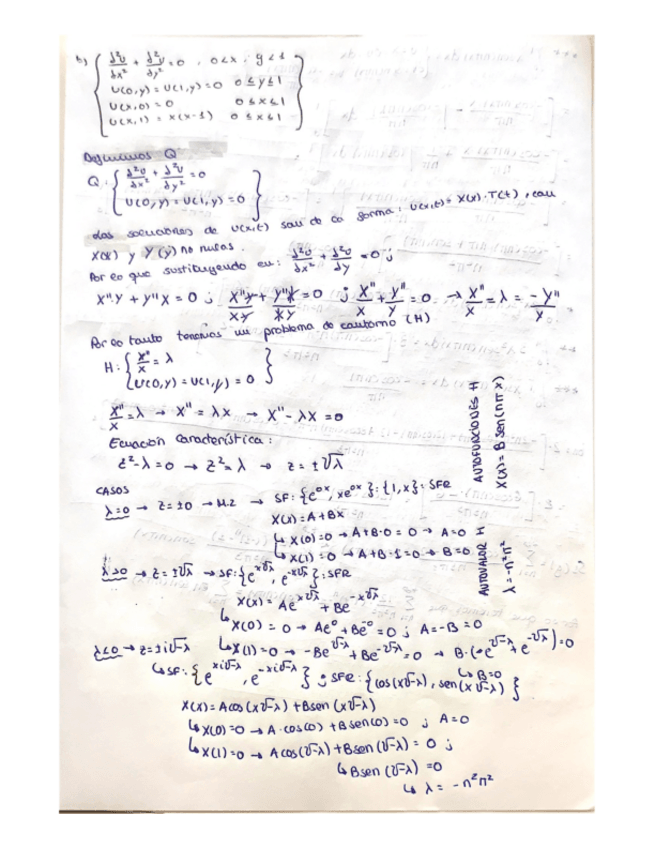 b) { ∂²u/∂x² + ∂²u/∂y² = 0 , 0<x, y<1
U(0,y) = U(1,y) = 0 0≤y≤1
U(x,0) = 0 0≤x≤1
U(x,1) = x(x-1) 0≤x≤1 }
Definimos Q
Q: { ∂²u/∂x² + ∂²u/∂y² = 0
U(0,y) = U(1,y) = 0 }
las soluciones de U(x,t) son de la forma: U(x,t) = X(x)·T(t), con
X(x) y Y(y) no nulas.
Por lo que sustituyendo en: ∂²u/∂x² + ∂²u/∂y = 0 ;
X''·Y + Y''X = 0 ; X''Y/XY + Y''X/XY = 0 ; X''/X + Y''/Y = 0 → X''/X = λ = -Y''/Y
Por lo tanto tenemos un problema de contorno (H)
H: { X''/X = λ
U(0,y) = U(1,y) = 0 }
X''/X = λ → X'' = λX → X'' - λX = 0
Ecuación característica:
z² - λ = 0 → z² = λ → z = ±√λ
CASOS
λ=0 → z = ±0 → M.2 → SF: {e^0x, xe^0x} : {1,x} : SFR
X(x) = A+BX
X(0) = 0 → A+B·0 = 0 → A=0
X(1) = 0 → A+B·1 = 0 → B=0
λ>0 → z = ±√λ → SF: {e^x√λ, e^-x√λ} : SFR
X(x) = Ae^x√λ + Be^-x√λ
X(0) = 0 → Ae^0 + Be^0 = 0 ; A=-B=0
X(1) = 0 → -Be^√-λ + Be^-√-λ = 0 → B·(-e^√-λ + e^-√-λ) = 0
B=0
λ<0 → z = ±i√-λ
SF: {e^xi√-λ, e^-xi√-λ} ; SFR: {cos(x√-λ), sen(x√-λ)}
X(x) = Acos(x√-λ) + Bsen(x√-λ)
X(0) = 0 → A·cos(0) + Bsen(0) = 0 ; A=0
X(1) = 0 → Acos(√-λ) + Bsen(√-λ) = 0 ;
Bsen(√-λ) = 0
λ = -n²π²
AUTOVALOR H
λ = -n²π²
AUTOFUNCIONES H
X(x) = B sen(nπx)